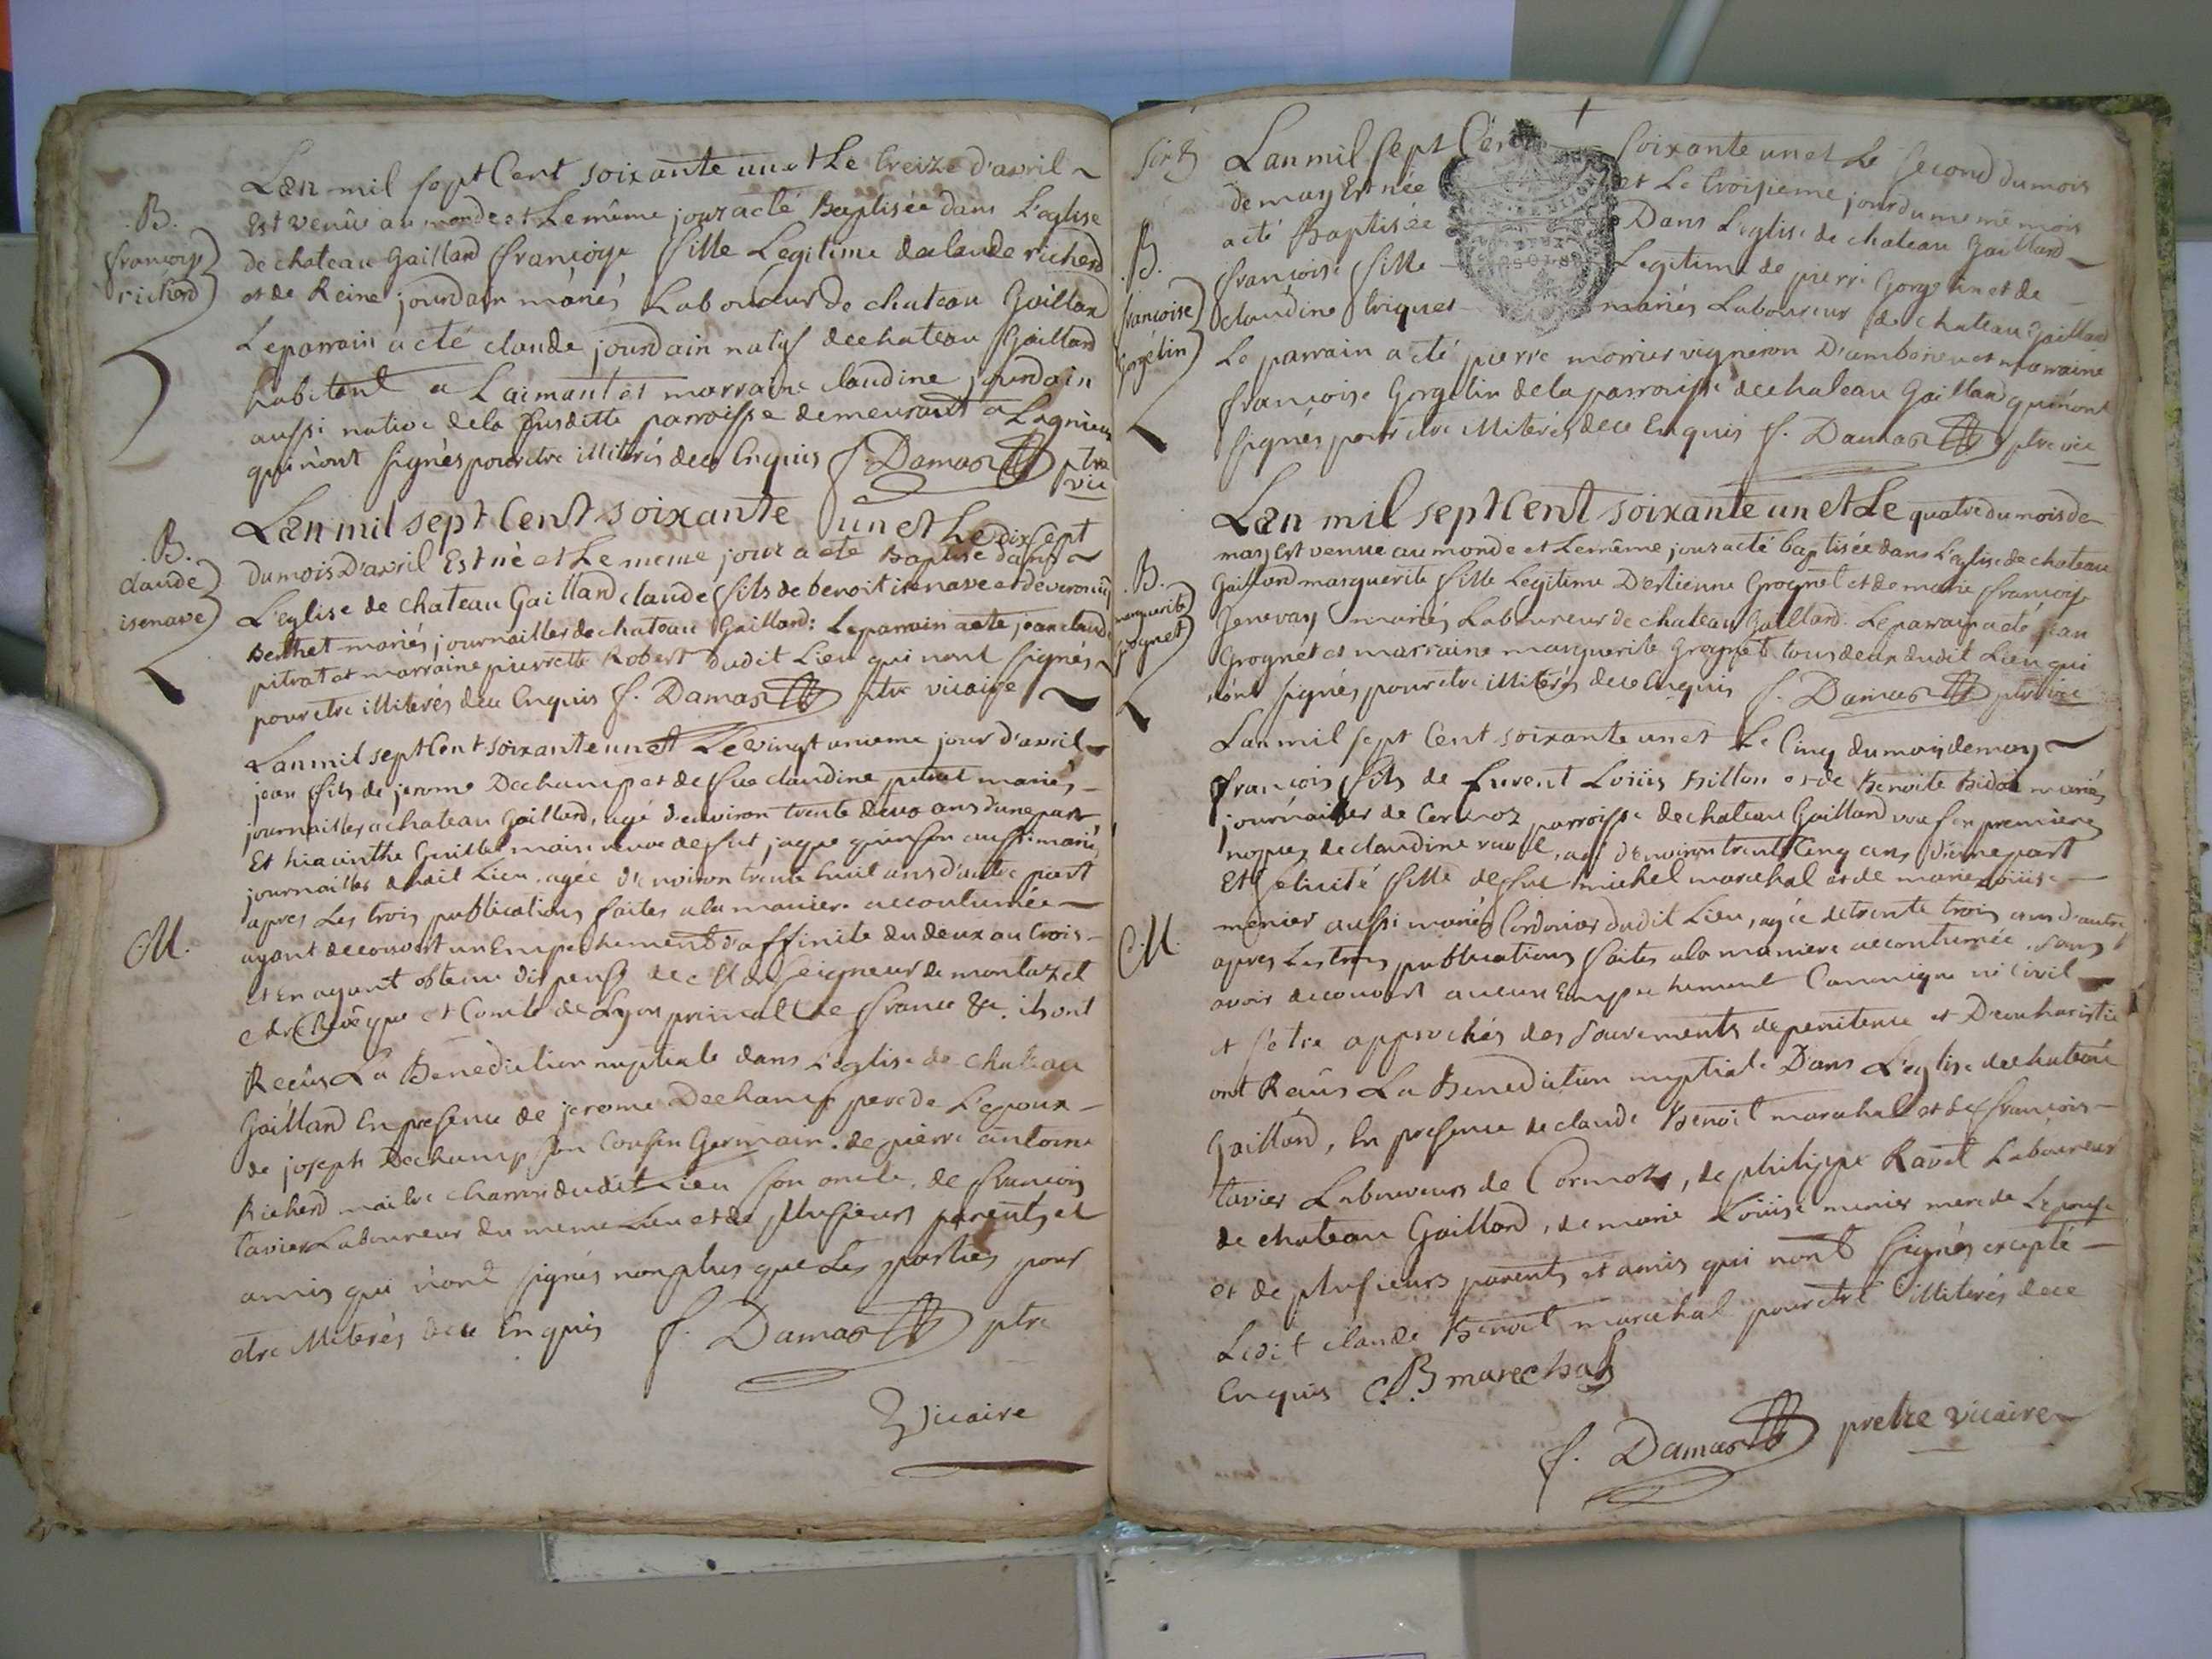 Lan mil sept Cent soixante un et Le treize d'avril
Est venüe au monde et Le même jour a eté Baptisée dans L'eglise
B.
françoise
richerd
de chateau Gaillard françoise fille Legitime de claude richerd
et de Reine jourdain mariés Laboureur de chateau Gaillard
Le parrain a eté claude jourdain natif de chateau Gaillard
habitant a Laimant et marraine claudine jourdain
aussi native de la susditte parroisse demeurant a Lagnieu
qui n'ont signés pour etre illiterés de ce Enquis f. Damas ptre
vic
Lan mil sept Cent soixante un et Le dix sept
B.
claude
isenave
du mois D'avril Est né et Le meme jour a eté Baptisé dans
L'eglise de chateau Gaillard claude fils de benoit isenave et de veronique
Berthet mariés journailler de chateau Gaillard: Le parrain a eté jean claude
pitrat et marraine pierrette Robert dudit Lieu qui n'ont signés
pour etre illiterés de ce Enquis f. Damas ptre vicaire
Lan mil sept Cent soixante un et Le vingt unieme jour d'avril
jean fils de jerome Dechamp et de fue claudine pitrat mariés
journailler a chateau Gaillard, agé d'environ trente deux ans d'une part
Et hiacinthe veuve de fut jaque aussi marié
journailler dudit Lieu, agée d'environ trente huit ans d'autre part
apres Les trois publications faites a la maniere accoutumée
M.
ayant decouvert un Empechement d'affinite du deux au trois
et En ayant obtenu dispense de Monseigneur de montazet
Archevêque et Comte de Lyon primat de france &c. ils ont
Reçus La Benediction nuptiale dans L'eglise de chateau
Gaillard En presence de jerome Dechamp pere de L'epoux
de joseph Dechamp son Cousin Germain. de pierre antoine
Richerd maitre charron dudit Lieu son oncle, de françois
tavier Laboureur du meme Lieu et de plusieurs parents et
amis qui n'ont signés non plus que Les parties pour
etre illiterés de ce Enquis f. Damas ptre
vicaire
Lan mil sept Cent soixante un et Le second du mois
de may Est née et Le troisieme jour du meme mois
a eté Baptisée Dans L'eglise de chateau Gaillard
B.
françoise
Gorgelin
françoise fille Legitime de pierre Gorgelin et de
claudine triquet mariés Laboureur de chateau Gaillard
Le parrain a eté pierre vigneron D'amberieu et marraine
françoise Gorgelin de la parroisse de chateau Gaillard qui n'ont
signés pour etre illiterés de ce Enquis f. Damas ptre vic
Lan mil sept Cent soixante un et Le quatre du mois de
may Est venue au monde et Le même jour a eté baptisée dans L'eglise de chateau
B.
marguerite
grognet
Gaillard marguerite fille Legitime D'estienne Grognet et de marie françoise
Jenevay mariés Laboureur de chateau Gaillard. Le parrain a eté jean
Grognet et marraine marguerite Grognet tous deux dudit Lieu qui
n'ont signés pour etre illiterés de ce Enquis f. Damas ptre vic
Lan mil sept Cent soixante un et Le Cinq du mois de may
françois fils de Louis Billon et de Benoite mariés
journailler de Cormoz parroisse de chateau Gaillard en premieres
nopces de claudine ravet, agé d'environ trente Cinq ans d'une part
Et felicité fille de fut michel marechal et de marie Loüise
M.
menier aussi mariés Cordonier dudit Lieu, agée de trente trois ans d'autre
apres Les trois publications faites a la maniere accoutumée, sans
avoir decouvert aucun Empechement Canonique ni Civil
et s'etre approchés des Sacrements de penitence et D'eucharistie
ont Reçus La Benediction nuptiale Dans L'eglise de chateau
Gaillard, En presence de claude Benoit marechal et de françois
tavier Laboureurs de Cormoz, de philippe Ravet Laboureur
de chateau Gaillard, de marie Loüise menier mere de L'epouse
et de plusieurs parents et amis qui n'ont signés excepté
Ledit claude Benoit marechal pour etre illiterés de ce
Enquis C. B marechal
f. Damas pretre vicaire